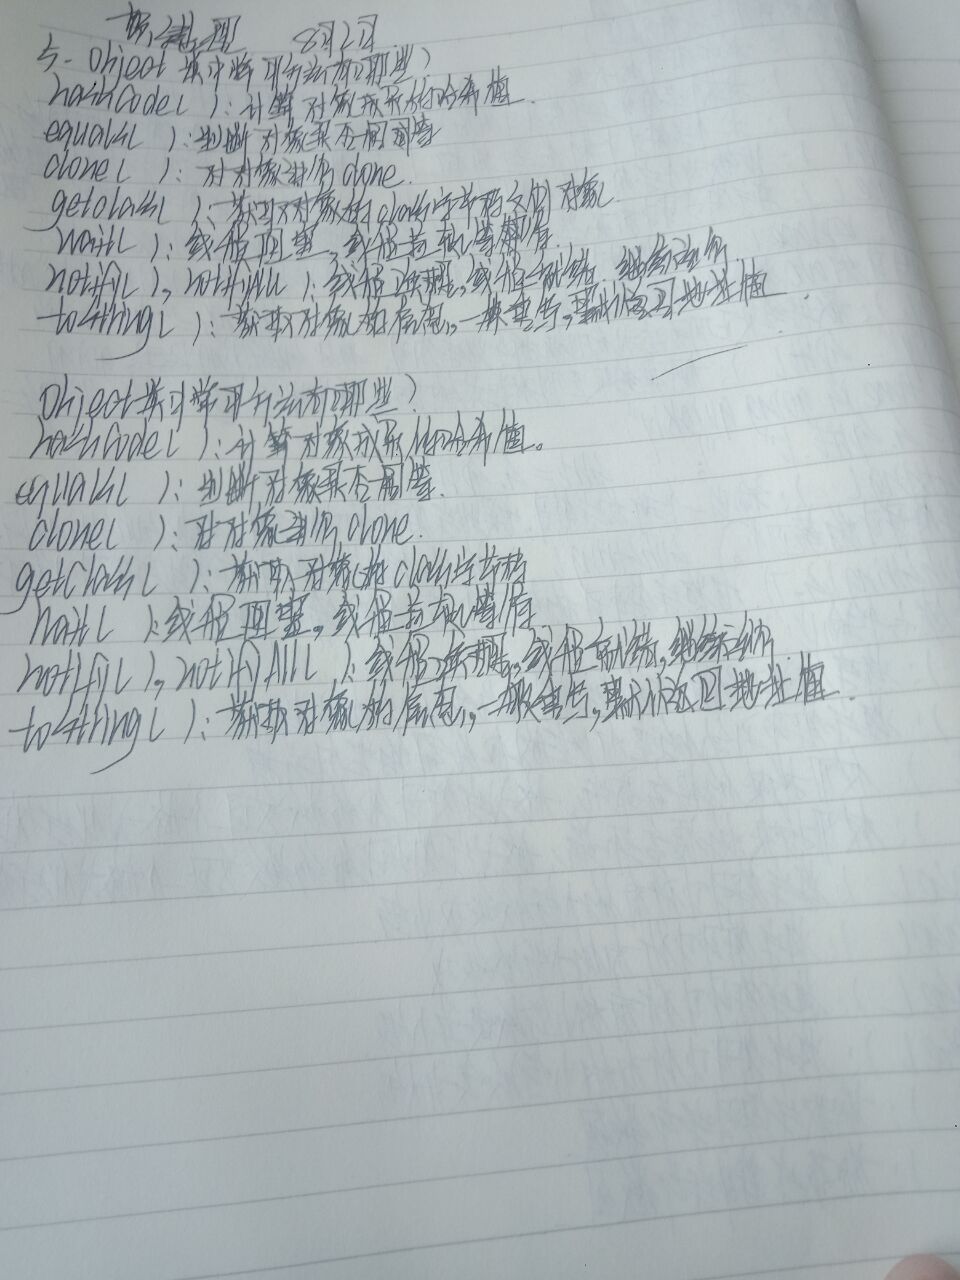 8月2日
5. Object类中常用方法有哪些?
hashCode( ):计算对象成员的哈希值.
equals( ):判断对象是否相同等
clone( ):对对象进行clone.
getclass( ):获取对象的class字节码文件对象.
wait( ):线程阻塞,线程等待.
notify( ), notifyAll( ):线程唤醒,线程就绪,继续运行.
toString( ):获取对象的信息,一般重写,默认返回地址值.
Object类中常用方法有哪些?
hashCode( ):计算对象成员的哈希值。
equals( ):判断对象是否相等.
clone( ):对对象进行clone.
getClass( ):获取对象的class字节码
wait( ):线程阻塞,线程等待.
notify( ), notifyAll( ):线程唤醒,线程就绪,继续运行.
toString( ):获取对象的信息,一般重写,默认返回地址值.